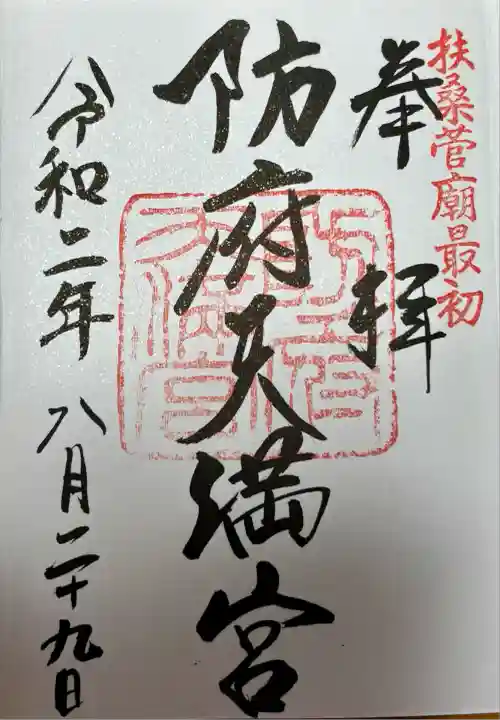 扶桑菅廟最初
奉拝
防府天満宮
令和二年 八月二十九日